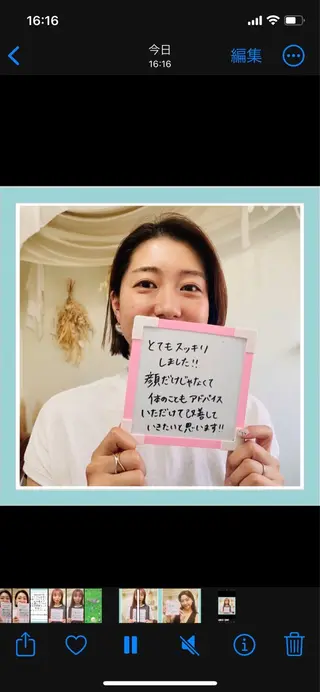 16:16
今日
16:16
編集
とてもスッキリ
しました!!
顔だけじゃなくて
体のことも アドバイス
いただけて改善して
いきたいと思います!!